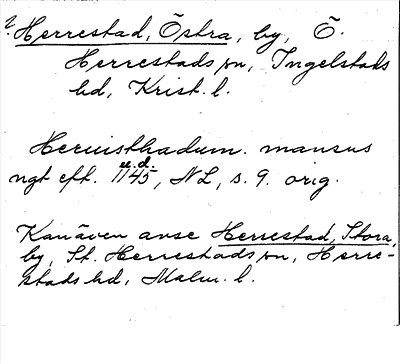 ? Herrestad, Östra, by, Ö.
Herrestads sn, Ingelstads
hd, Krist. l.
Heruisthadum. mansus
u.d.
ngt eft. 1145, NL, s. 9. orig.
Kan även avse Herrestad, Stora,
by, St. Herrestads sn, Herre-
stads hd, Malm. l.